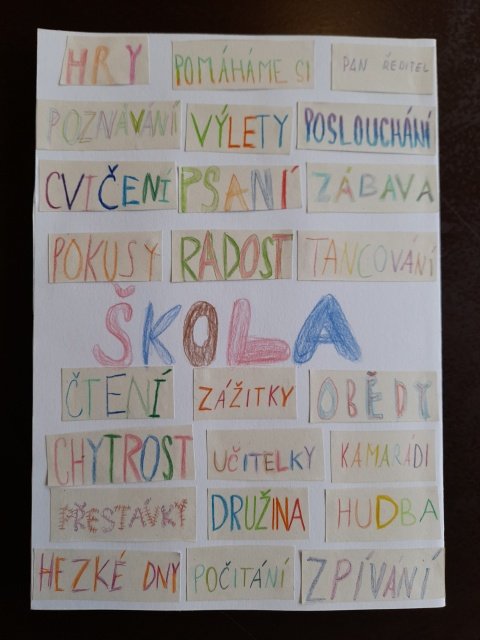 HRY POMÁHÁME SI PAN ŘEDITEL
POZNÁVÁNÍ VÝLETY POSLOUCHÁNÍ
CVIČENI PSANÍ ZÁBAVA
POKUSY RADOST TANCOVÁNÍ
ŠKOLA
ČTENÍ ZÁŽITKY OBĚDY
CHYTROST UČITELKY KAMARÁDI
PŘESTÁVKY DRUŽINA HUDBA
HEZKÉ DNY POČÍTÁNÍ ZPÍVÁNÍ